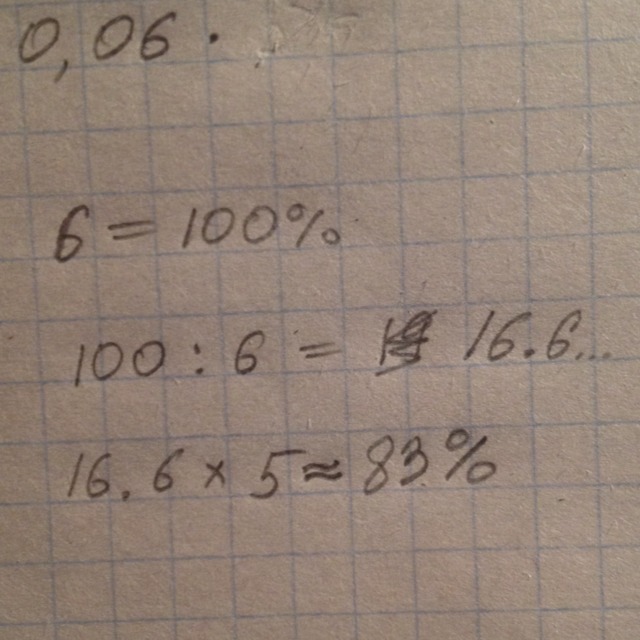 0,06.
6 = 100%
100 : 6 = 16.6...
16.6 × 5 ≈ 83%